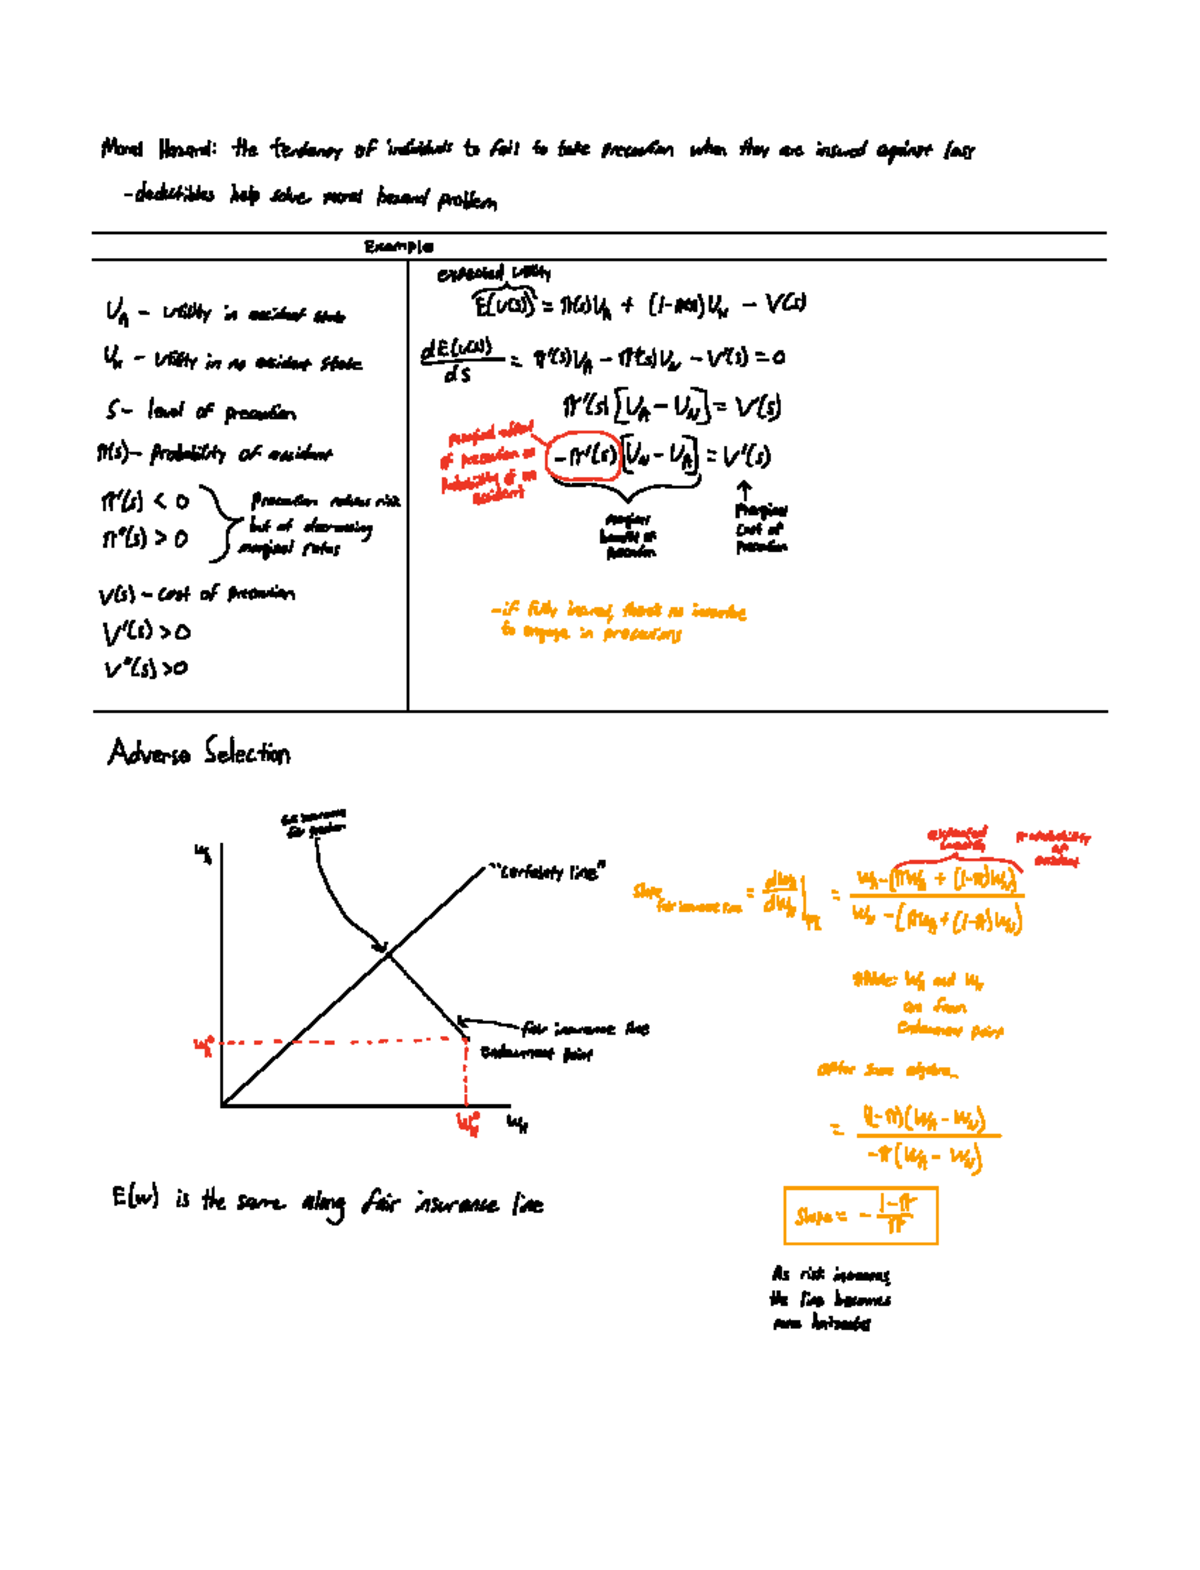 Moral Hazard: the tendency of individuals to fail to take precaution when they are insured against loss
- deductibles help solve moral hazard problem
Example
U_A - Utility in accident state
U_N - Utility in no accident state
S - level of precaution
π(s) - Probability of accident
π'(s) < 0
π"(s) > 0
Precaution reduces risk
but at decreasing
marginal rates
V(s) - cost of precaution
V'(s) > 0
V"(s) > 0
expected utility
E(U(s)) = π(s)U_A + (1-π(s))U_N - V(s)
dE(U(s))/dS = π'(s)U_A - π'(s)U_N - V'(s) = 0
π'(s)[U_A - U_N] = V'(s)
-π'(s)[U_N - U_A] = V'(s)
marginal effect
of precaution on
Probability of an
accident
marginal
benefit of
Precaution
Marginal
Cost of
Precaution
- if fully insured, there's no incentive
to engage in precautions
Adverse Selection
W_A
"Certainty line"
fair insurance line
Endowment Point
W_A°
W_N°
W_N
E(w) is the same along fair insurance line
expected
Probability
of
accident
Slope fair insurance line = dW_A/dW_N = W_A - (πW_A + (1-π)W_N) / W_N - (πW_A + (1-π)W_N)
*Note: W_A and W_N
are from
Endowment point
after some algebra
= (1-π)(W_A - W_N) / -π(W_A - W_N)
Slope = - 1-π/π
As risk increases,
the line becomes
more horizontal